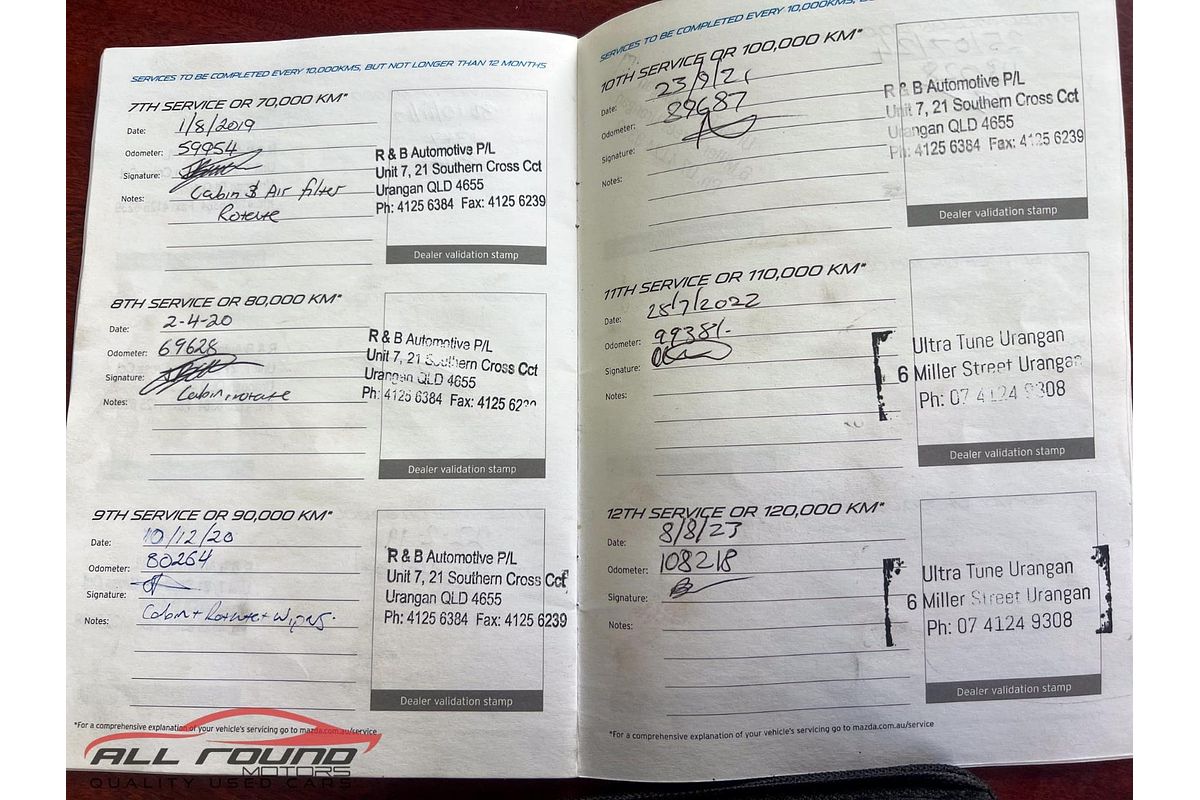 SERVICES TO BE COMPLETED EVERY 10,000KMS, BUT NOT LONGER THAN 12 MONTHS
7TH SERVICE OR 70,000 KM*
Date: 1/8/2019
Odometer: 59954
Signature:
Notes: Cabin & Air filter
Rotate
R & B Automotive P/L
Unit 7, 21 Southern Cross Cct
Urangan QLD 4655
Ph: 4125 6384 Fax: 4125 6239
Dealer validation stamp
8TH SERVICE OR 80,000 KM*
Date: 2-4-20
Odometer: 69628
Signature:
Notes: Cabin, rotate
R & B Automotive P/L
Unit 7, 21 Southern Cross Cct
Urangan QLD 4655
Ph: 4125 6384 Fax: 4125 62
Dealer validation stamp
9TH SERVICE OR 90,000 KM*
Date: 10/12/20
Odometer: 80264
Signature:
Notes: Cabin + Rotate + Wipers.
R & B Automotive P/L
Unit 7, 21 Southern Cross Cct
Urangan QLD 4655
Ph: 4125 6384 Fax: 4125 6239
Dealer validation stamp
*For a comprehensive explanation of your vehicle's servicing go to mazda.com.au/service
ALL ROUND
MOTORS
QUALITY USED CARS
SERVICES TO BE COMPLETED EVERY 10,000KMS,
10TH SERVICE OR 100,000 KM*
Date: 23/9/21
Odometer: 89687
Signature:
Notes:
R & B Automotive P/L
Unit 7, 21 Southern Cross Cct
Urangan QLD 4655
Ph: 4125 6384 Fax: 4125 6239
Dealer validation stamp
11TH SERVICE OR 110,000 KM*
Date: 28/7/2022
Odometer: 99381.
Signature:
Notes:
Ultra Tune Urangan
6 Miller Street Urangan
Ph: 07 4124 9308
Dealer validation stamp
12TH SERVICE OR 120,000 KM*
Date: 8/8/23
Odometer: 108218
Signature:
Notes:
Ultra Tune Urangan
6 Miller Street Urangan
Ph: 07 4124 9308
Dealer validation stamp
*For a comprehensive explanation of your vehicle's servicing go to mazda.com.au/service